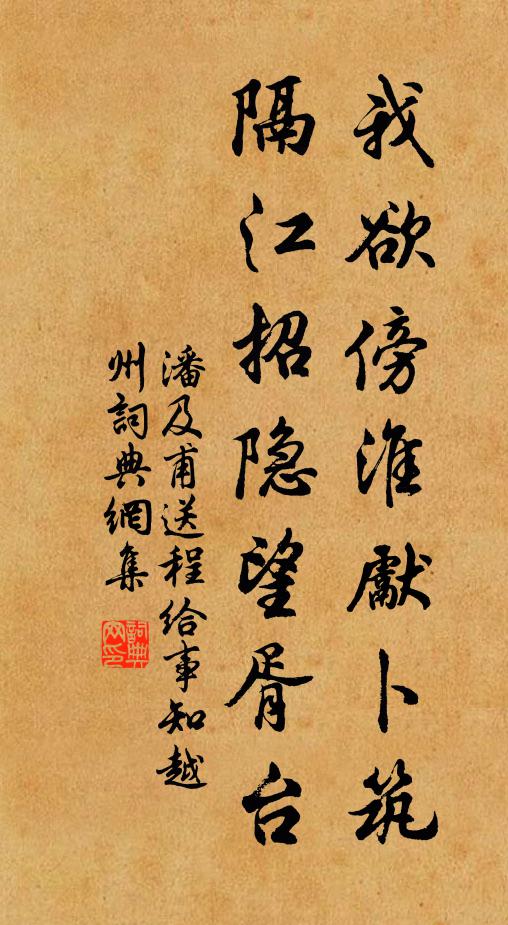 我欲傍淮獻卜筑
隔江招隐望胥台
潘及甫送程给事知越
州詞典網集
詞典
网印